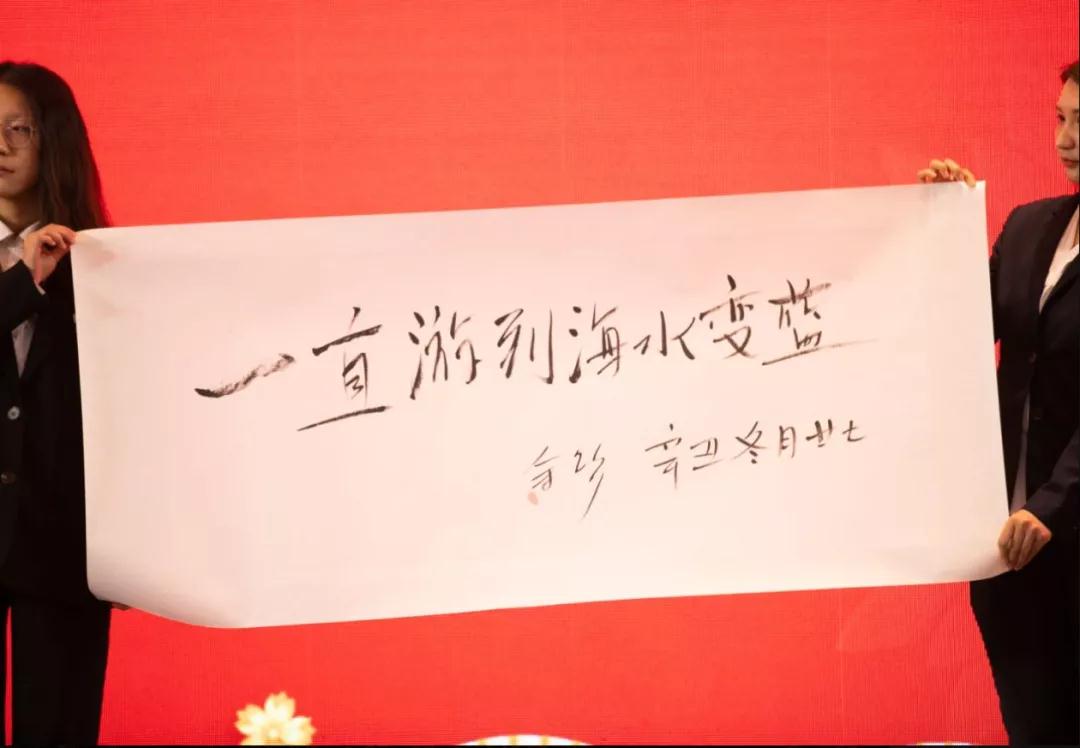 一直游到海水变蓝
辛丑冬月廿七